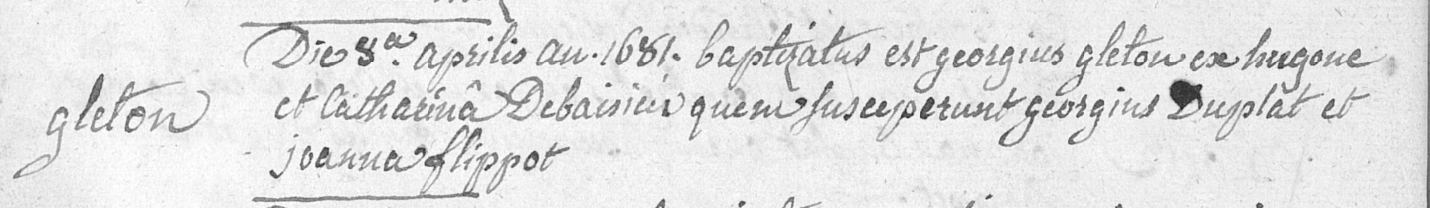 Die 8.a aprilis an. 1681. baptizatus est georgius gleton ex hugone
gleton
et Catharinâ Debaisieu quem susceperunt georgius Duplat et
joanna flippot